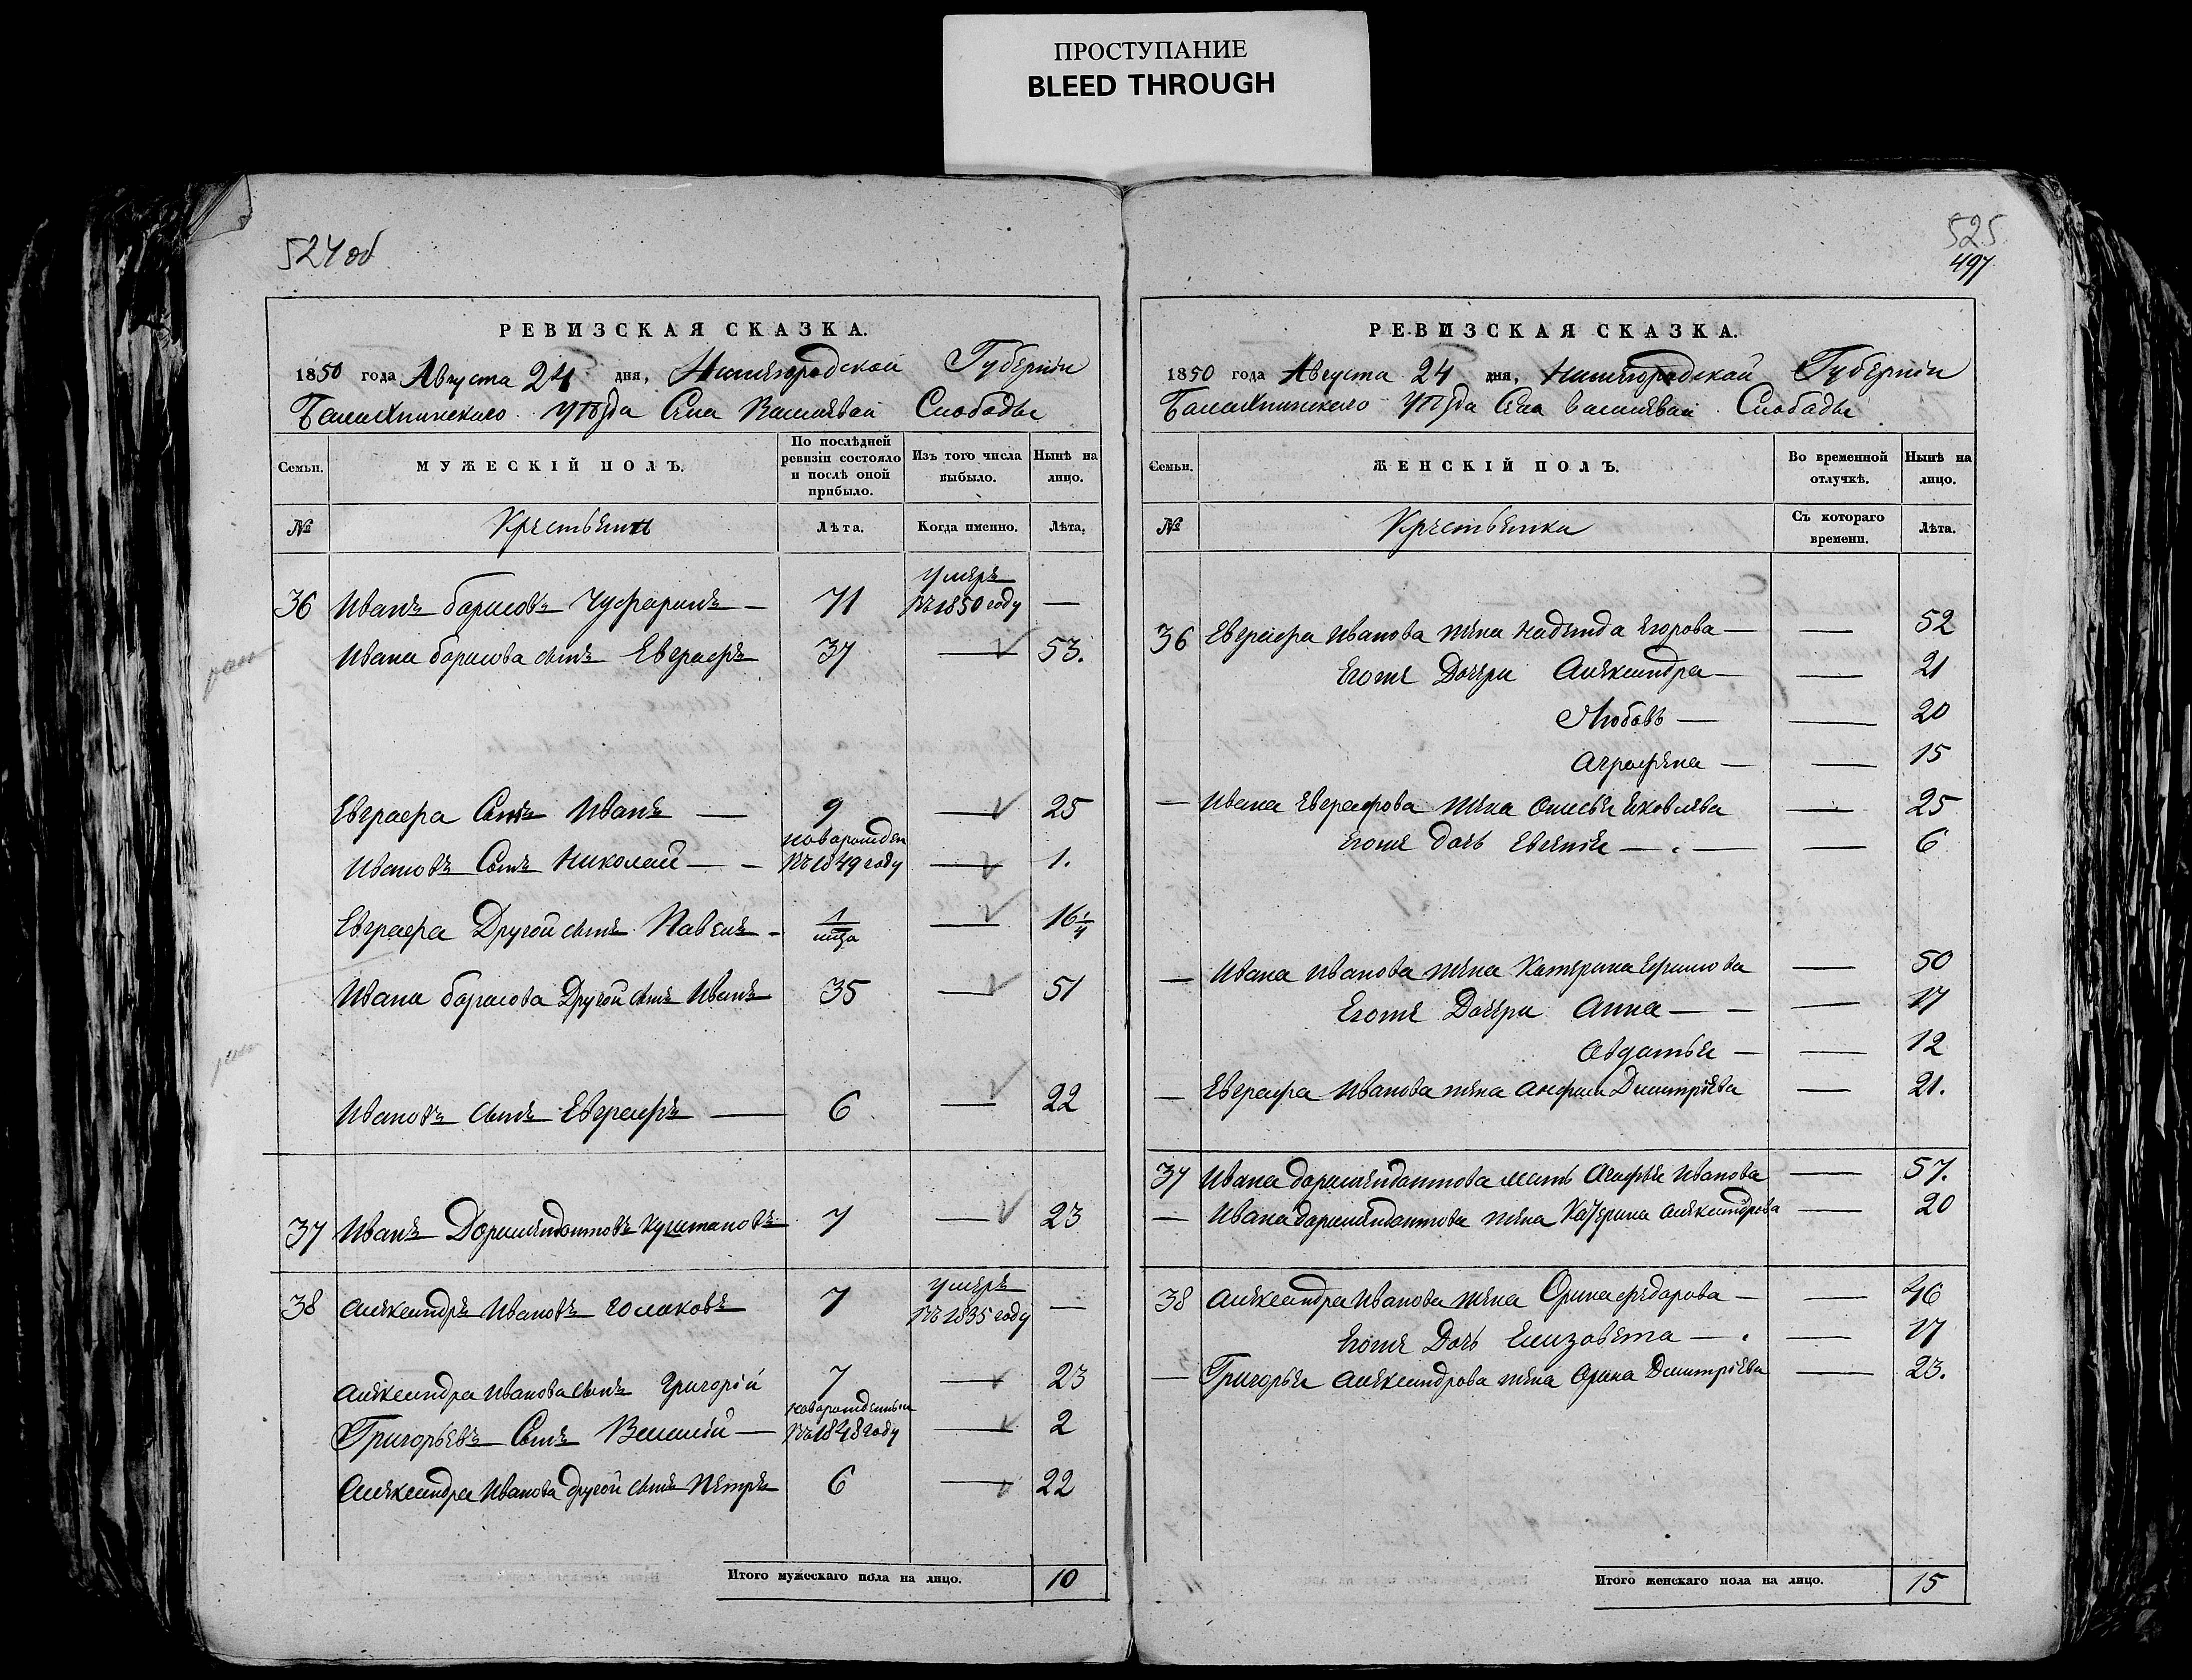 ПРОСТУПАНИЕ
BLEED THROUGH
524 об
РЕВИЗСКАЯ СКАЗКА.
1850 года Августа 24 дня, Нижегородской Губернiи
Балахнинскаго уѣзда Села Василѣвай Слободы
Семьи. МУЖЕСКIЙ ПОЛЪ. По послѣдней ревизiи состояло и послѣ оной прибыло. Изъ того числа выбыло. Нынѣ на лицо.
№ Крестьяне Лѣта. Когда именно. Лѣта,
36 Иванъ борисовъ Чуфаринъ — 71 умеръ въ 1850 году —
Ивана борисова сынъ Евграфъ 37 — 53.
Евграфа Сынъ Иванъ — 9 — 25
Ивановъ Сынъ Николай — — новорожден въ 1849 году — 1.
Евграфа Другой сынъ Павелъ - 1/мца — 16 1/4
Ивана борисова Другой сынъ Иванъ 35 — 51
Ивановъ сынъ Евграфъ — 6 — 22
37 Иванъ Дормендонтовъ 7 — 23
38 Александръ Ивановъ 7 умеръ въ 1835 году —
Александра Иванова сынъ Григорiй 7 — 23
Григорьевъ Сынъ Василiй — новорожденный въ 1848 году — 2
Александра Иванова другой сынъ Петръ 6 — 22
Итого мужескаго пола на лицо. 10
525
497
РЕВИЗСКАЯ СКАЗКА.
1850 года Августа 24 дня, Нижегородской Губернiи
Балахнинскаго уѣзда Села василѣвай Слободы
Семьи. ЖЕНСКIЙ ПОЛЪ. Во временной отлучкѣ. Нынѣ на лицо.
№ Крестьянки Съ котораго времени. Лѣта.
36 Евграфа Иванова жена надежда Егорова — — 52
Егоже Дочери Александра — — 21
Любовь — — 20
Аграфена — — 15
— Ивана Евграфова жена Яковлева — 25
Егоже дочь Евгенiя — . — — 6
— Ивана Иванова жена Катерина Ефимова — 50
Егоже Дочери Анна — - — 17
Авдатья — — 12
— Евграфа Иванова жена Дмитрiева — 21.
37 Ивана дормендонтова мать Агафья Иванова — 57.
— Ивана дормендонтова жена Катерина Александрова — 20
38 Александра Иванова жена Орина федорова — — 46
Егоже Дочь Елизавета — . — 17
— Григорья Александрова жена Орина Дмитрiева — 23.
Итого женскаго пола на лицо. 15